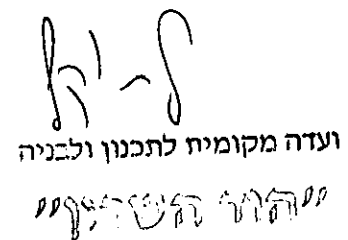 ועדה מקומית לתכנון ולבניה
"הוד השרון"